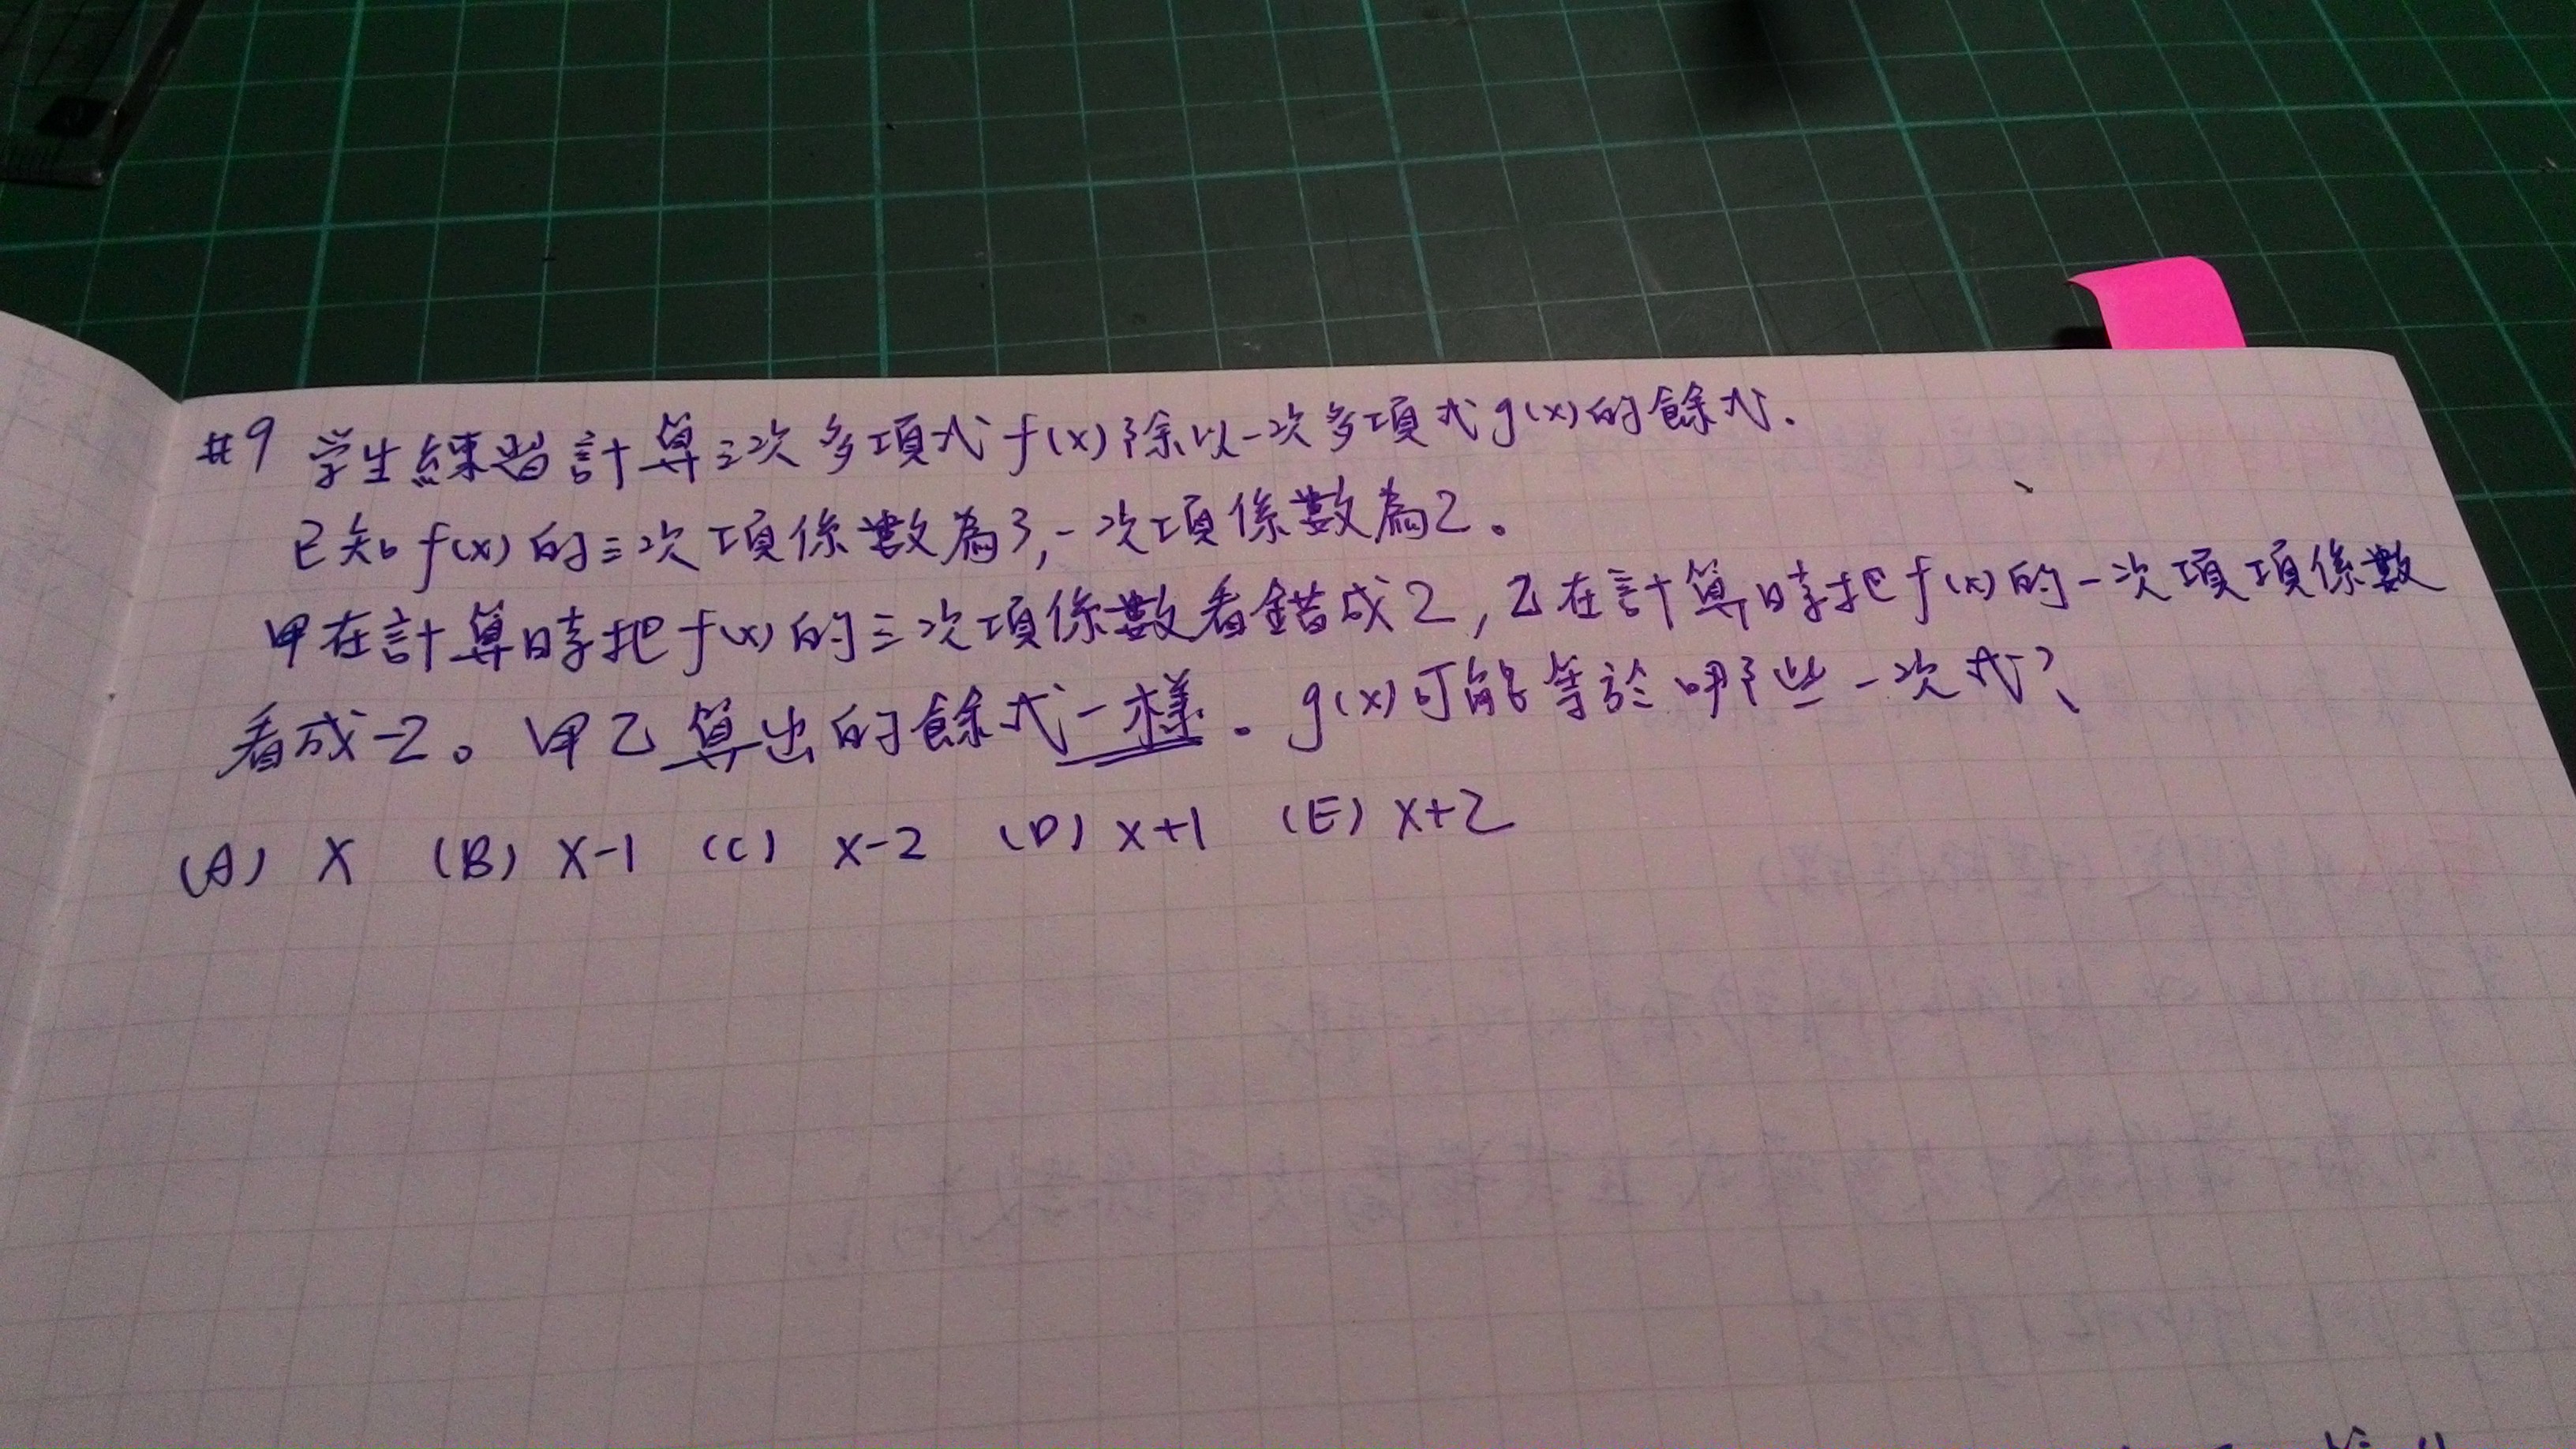 #9 学生練習計算三次多項式f(x)除以一次多項式g(x)的餘式.
已知f(x)的三次項係數為3,一次項係數為2。
甲在計算時把f(x)的三次項係數看錯成2,乙在計算時把f(x)的一次項項係數
看成-2。甲乙算出的餘式一樣.g(x)可能等於哪些一次式?
(A) x (B) x-1 (C) x-2 (D) x+1 (E) x+2